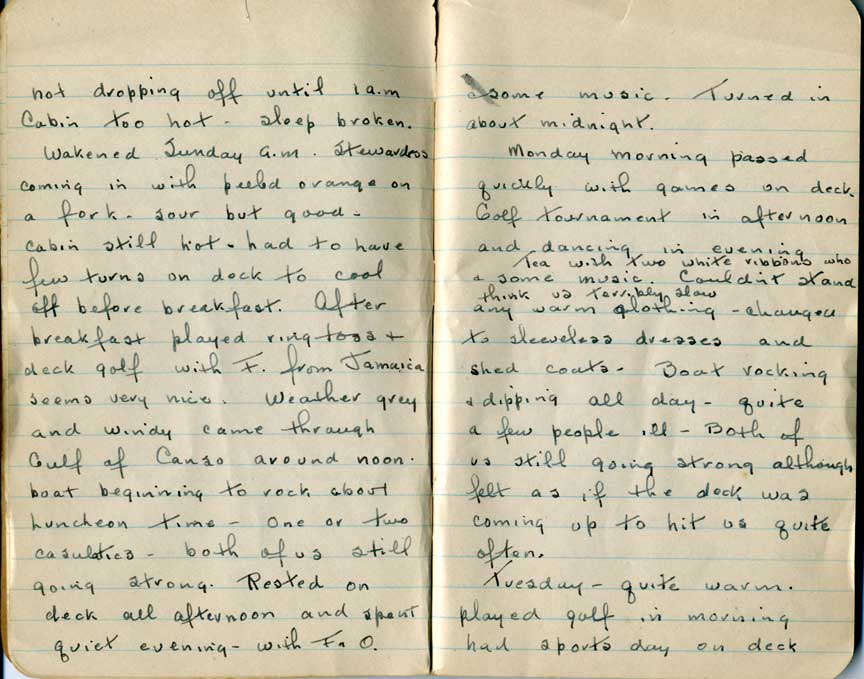 not dropping off until 1 a.m
Cabin too hot - sleep broken.
Wakened Sunday a.m. Stewardess
coming in with peeled orange on
a fork - sour but good -
cabin still hot - had to have
few turns on deck to cool
off before breakfast. After
breakfast played ring toss +
deck golf with F. from Jamaica
seems very nice. Weather grey
and windy came through
Gulf of Canso around noon.
boat beginning to rock about
luncheon time - one or two
casulties - both of us still
going strong. Rested on
deck all afternoon and spent
quiet evening - with F. O.
some music. Turned in
about midnight.
Monday morning passed
quickly with games on deck.
Golf tournament in afternoon
and dancing in evening
Tea with two white ribbons who
+ some music. Couldn't stand
think us terribly slow
any warm clothing - changed
to sleeveless dresses and
shed coats - Boat rocking
+ dipping all day - quite
a few people ill - Both of
us still going strong although
felt as if the deck was
coming up to hit us quite
often.
Tuesday - quite warm.
played golf in morning
had sports day on deck